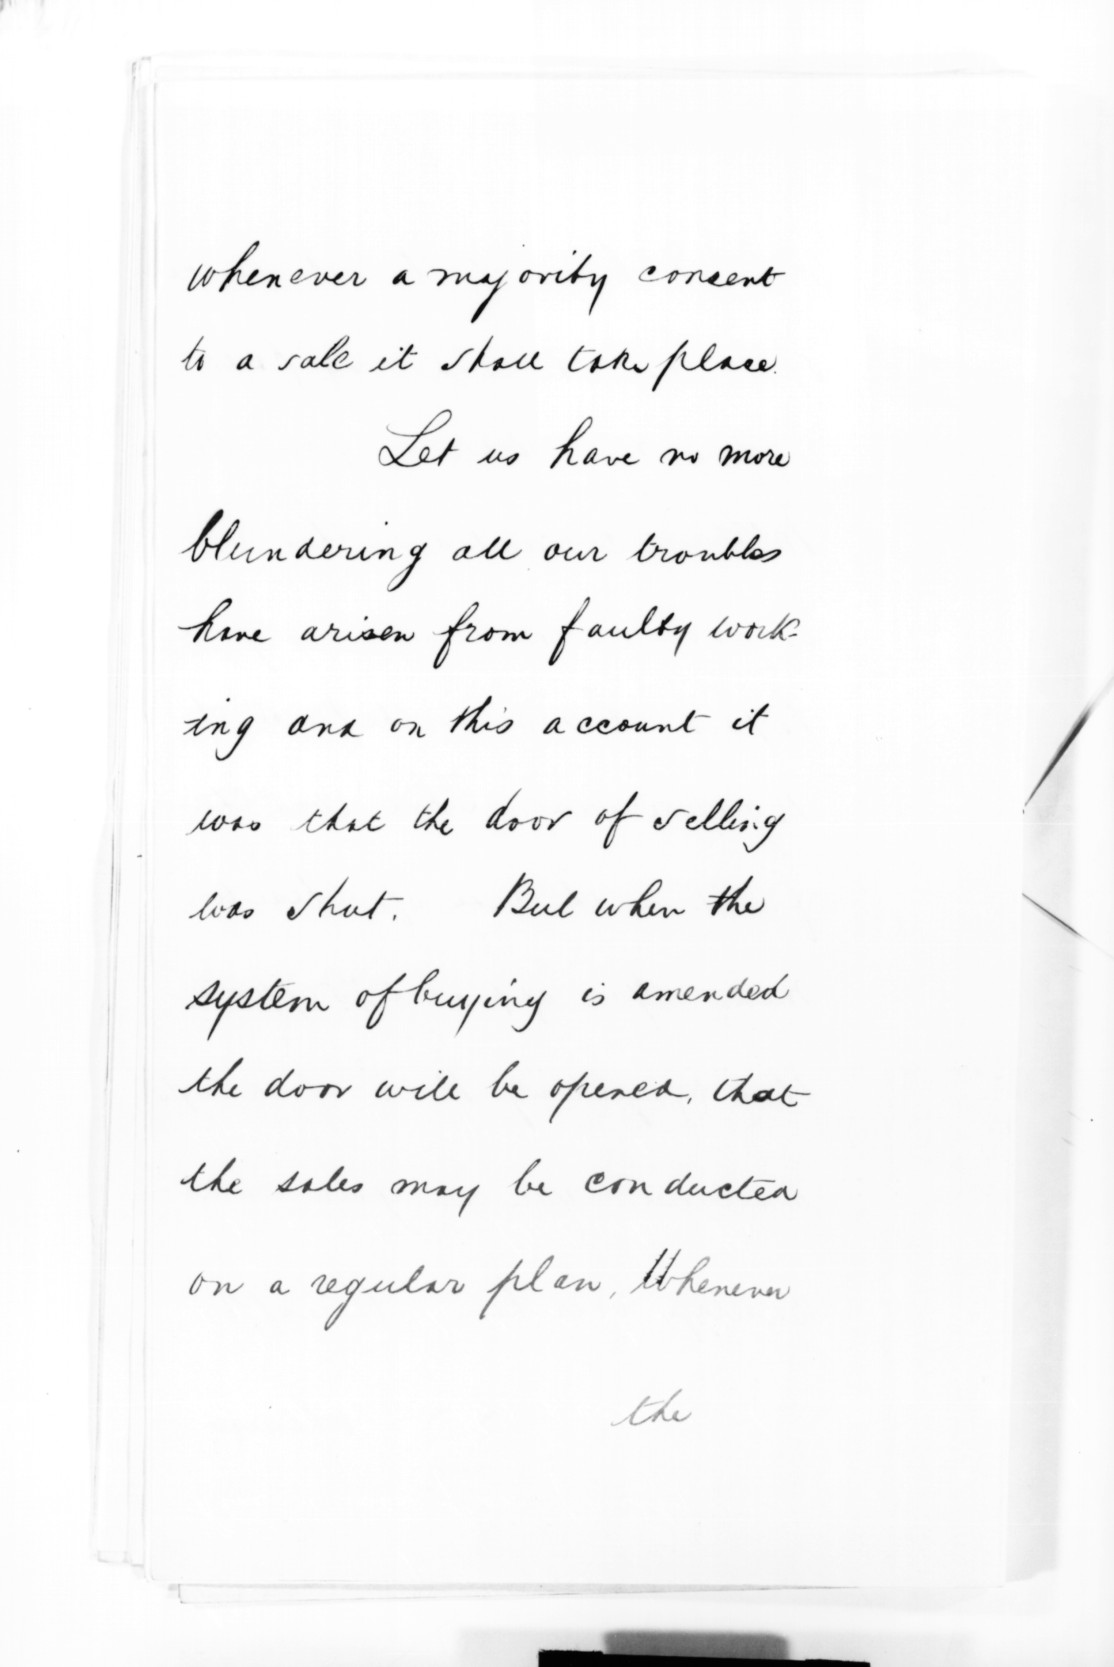 whenever a majority consent
to a sale it shall take place.
Let us have no more
blundering all our troubles
have arisen from faulty work-
-ing and on this account it
was that the door of selling
was shut. But when the
system of buying is amended
the door will be opened, that
the sales may be conducted
on a regular plan, Whenever
the